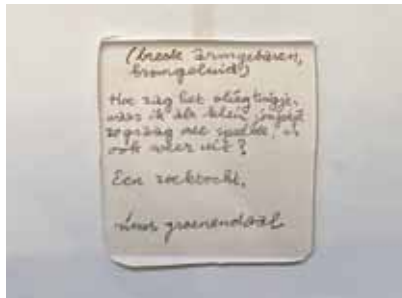 (brede armgebaren,
bromgeluid)
Hoe zag het vliegtuigje,
waar ik als klein jongetje
zo graag mee speelde, er
ook weer uit?
Een zoektocht,
groenendaal